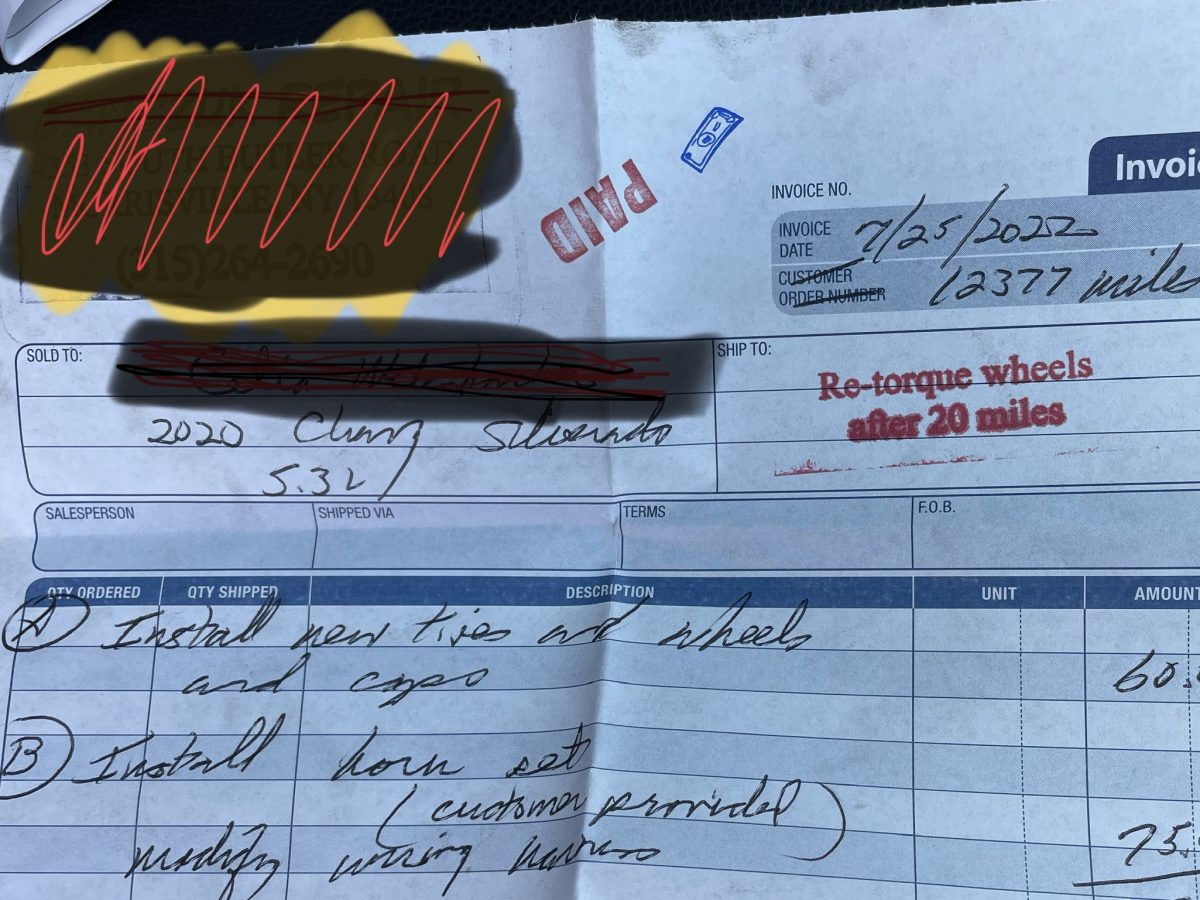 PAID
Invoi
INVOICE NO.
INVOICE DATE 7/25/2022
CUSTOMER ORDER NUMBER 12377 miles
SOLD TO:
SHIP TO:
Re-torque wheels
after 20 miles
2020 Chevy Silverado
5.3L
SALESPERSON SHIPPED VIA TERMS F.O.B.
QTY ORDERED QTY SHIPPED DESCRIPTION UNIT AMOUNT
A Install new tires and wheels
and caps 60.
B Install horn set
(customer provided)
modify wiring harness 75.